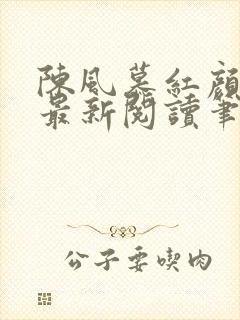 陳風慕紅顏
最新閱讀筆
公子要喫肉